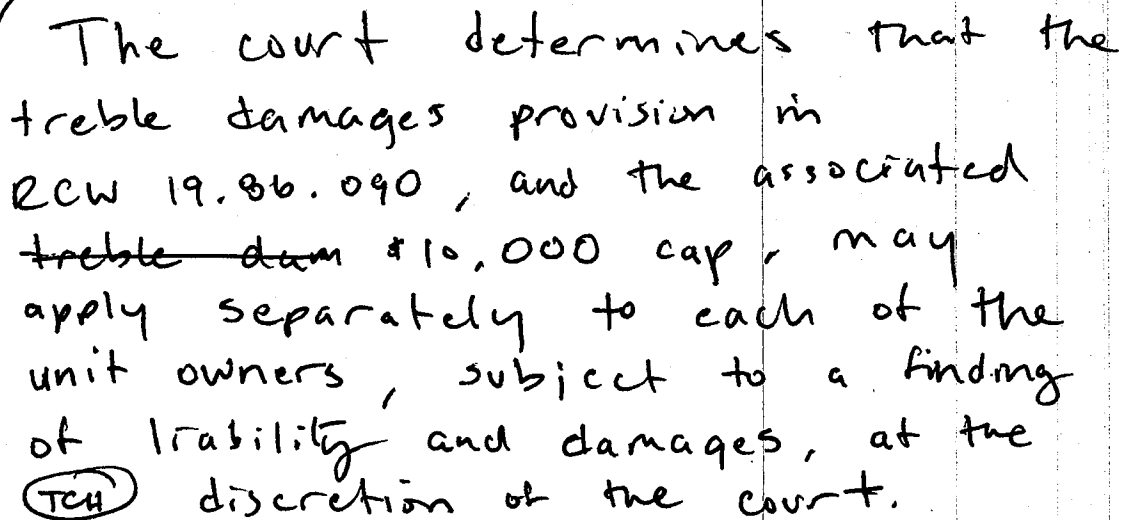 The court determines that the
treble damages provision in
RCW 19.86.090, and the associated
treble dam $10,000 cap, may
apply separately to each of the
unit owners, subject to a finding
of liability and damages, at the
TCH discretion of the court.